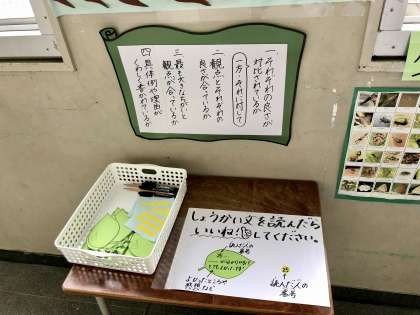 一 それぞれの良さが
対比されているか
一方・それに対して
二 観点とそれぞれの
良さが合っているか
三 最も大きなちがいと
観点が合っているか
四 具体例や理由が
くわしく書かれているか
しょうかい文を読んだら
いいね!してください。
読んだ人の
番号
よかったところや
感想など
25
読んだ人の
番号